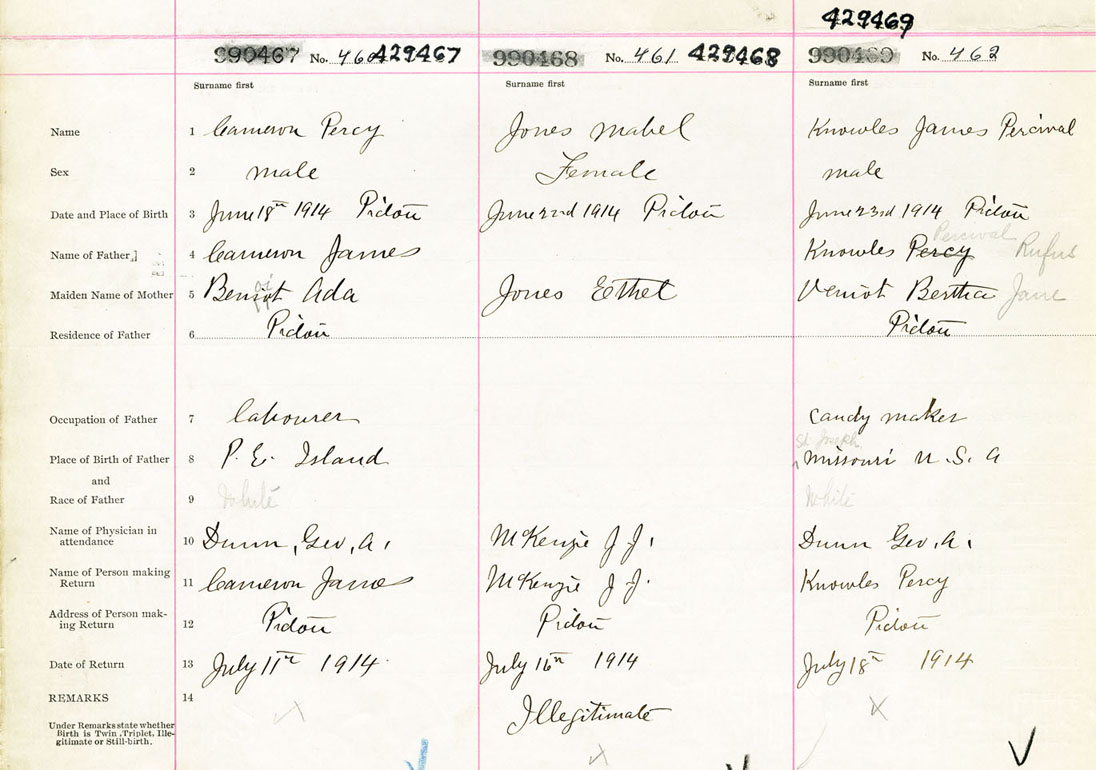 429469
990467 No. 460 429467 990468 No. 461 429468 990469 No. 462
Surname first Surname first Surname first
Name 1 Cameron Percy Jones Mabel Knowles James Percival
Sex 2 male Female male
Date and Place of Birth 3 June 18th 1914 Pictou June 22nd 1914 Pictou June 23rd 1914 Pictou
Percival
Name of Father 4 Cameron James Knowles Percy Rufus
Maiden Name of Mother 5 Ada Jones Ethel Veniot Bertha Jane
Residence of Father 6 Pictou Pictou
Occupation of Father 7 labourer Candy maker
St. Joseph
Place of Birth of Father 8 P. E. Island Missouri U. S. A
and
Race of Father 9 White White
Name of Physician in
attendance 10 Dunn, Geo, A. McKenzie J J. Dunn Geo, A.
Name of Person making
Return 11 Cameron James McKenzie J J. Knowles Percy
Address of Person mak-
ing Return 12 Pictou Pictou Pictou
Date of Return 13 July 11th 1914 July 16th 1914 July 18th 1914
REMARKS 14
Illegitimate
Under Remarks state whether
Birth is Twin, Triplet, Ille-
gitimate or Still-birth.